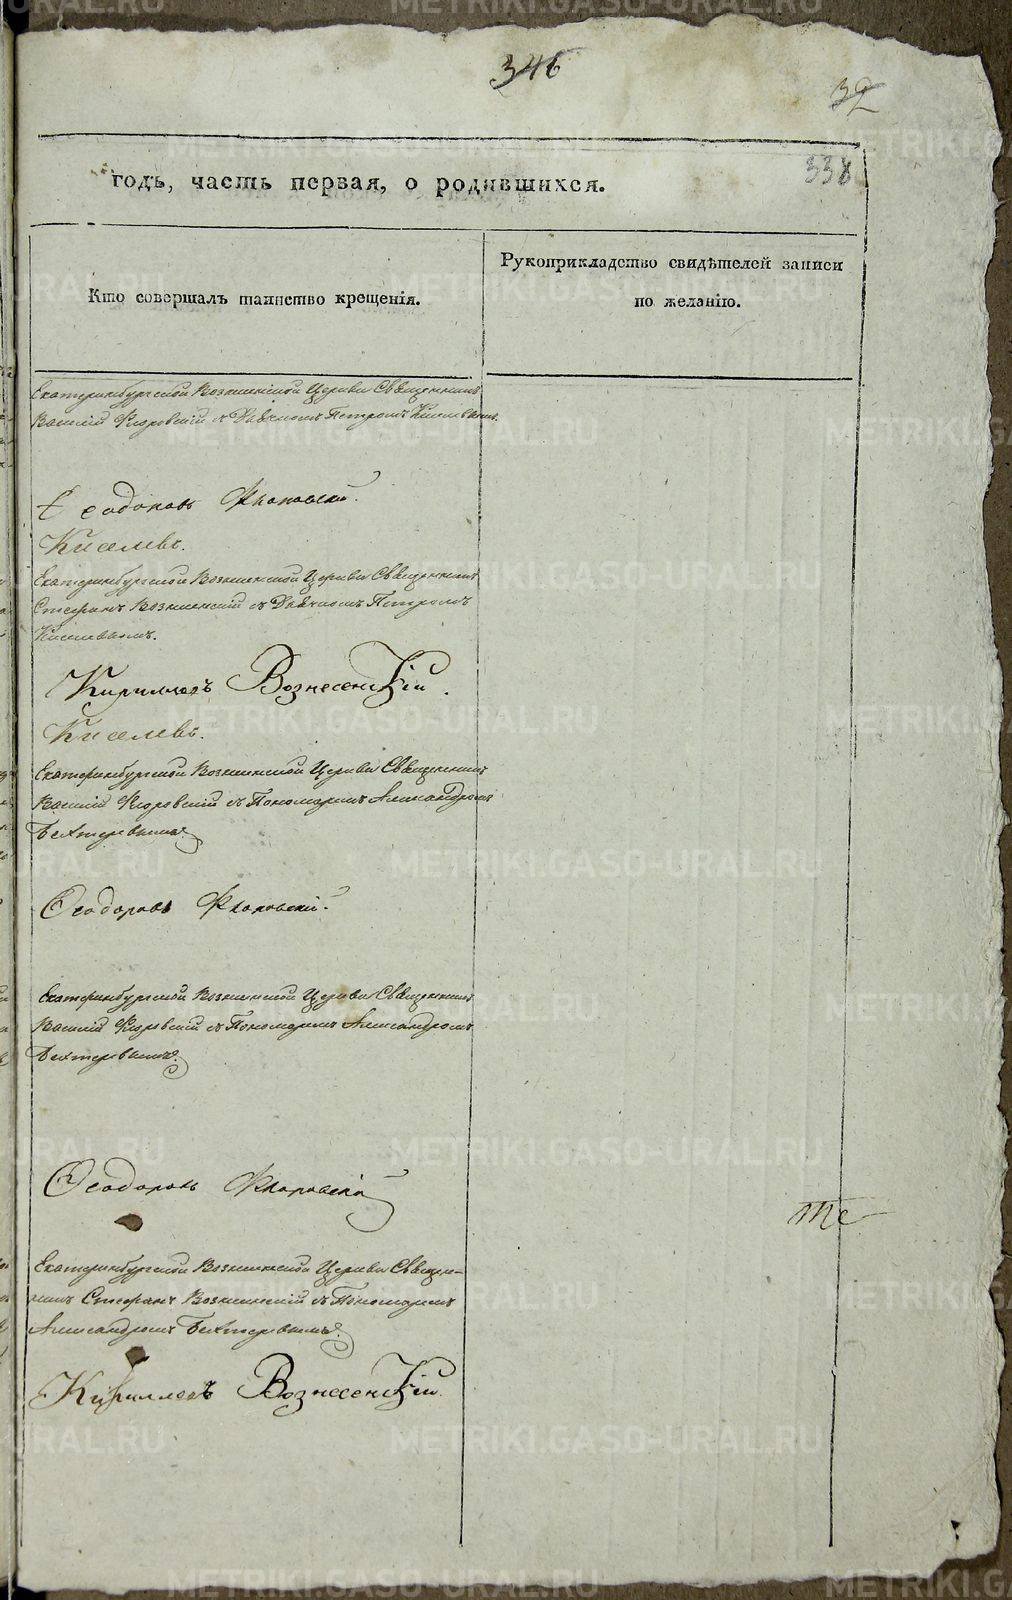 346
32
338
годъ, часть первая, о родившихся.
Кто совершалъ таинство крещенія.
Рукоприкладство свидѣтелей записи
по желанію.
Екатеринбургской Вознесенской Церкви Священникъ
Василій Флоровскій съ Дьячкомъ Петромъ Киселевымъ.
Феодоровъ Флоровскій.
Киселевъ.
Екатеринбургской Вознесенской Церкви Священникъ
Стефанъ Вознесенскій съ Дьячкомъ Петромъ
Киселевымъ.
Кирилловъ Вознесенскій.
Киселевъ.
Екатеринбургской Вознесенской Церкви Священникъ
Василій Флоровскій съ Пономаремъ Александромъ
Бехтеревымъ.
Феодоровъ Флоровскій.
Екатеринбургской Вознесенской Церкви Священникъ
Василій Флоровскій съ Пономаремъ Александромъ
Бехтеревымъ.
Феодоровъ Флоровскій
Екатеринбургской Вознесенской Церкви Священ-
никъ Стефанъ Вознесенскій съ Пономаремъ
Александромъ Бехтеревымъ.
Кирилловъ Вознесенскій.
METRIKI.GASO-URAL.RU